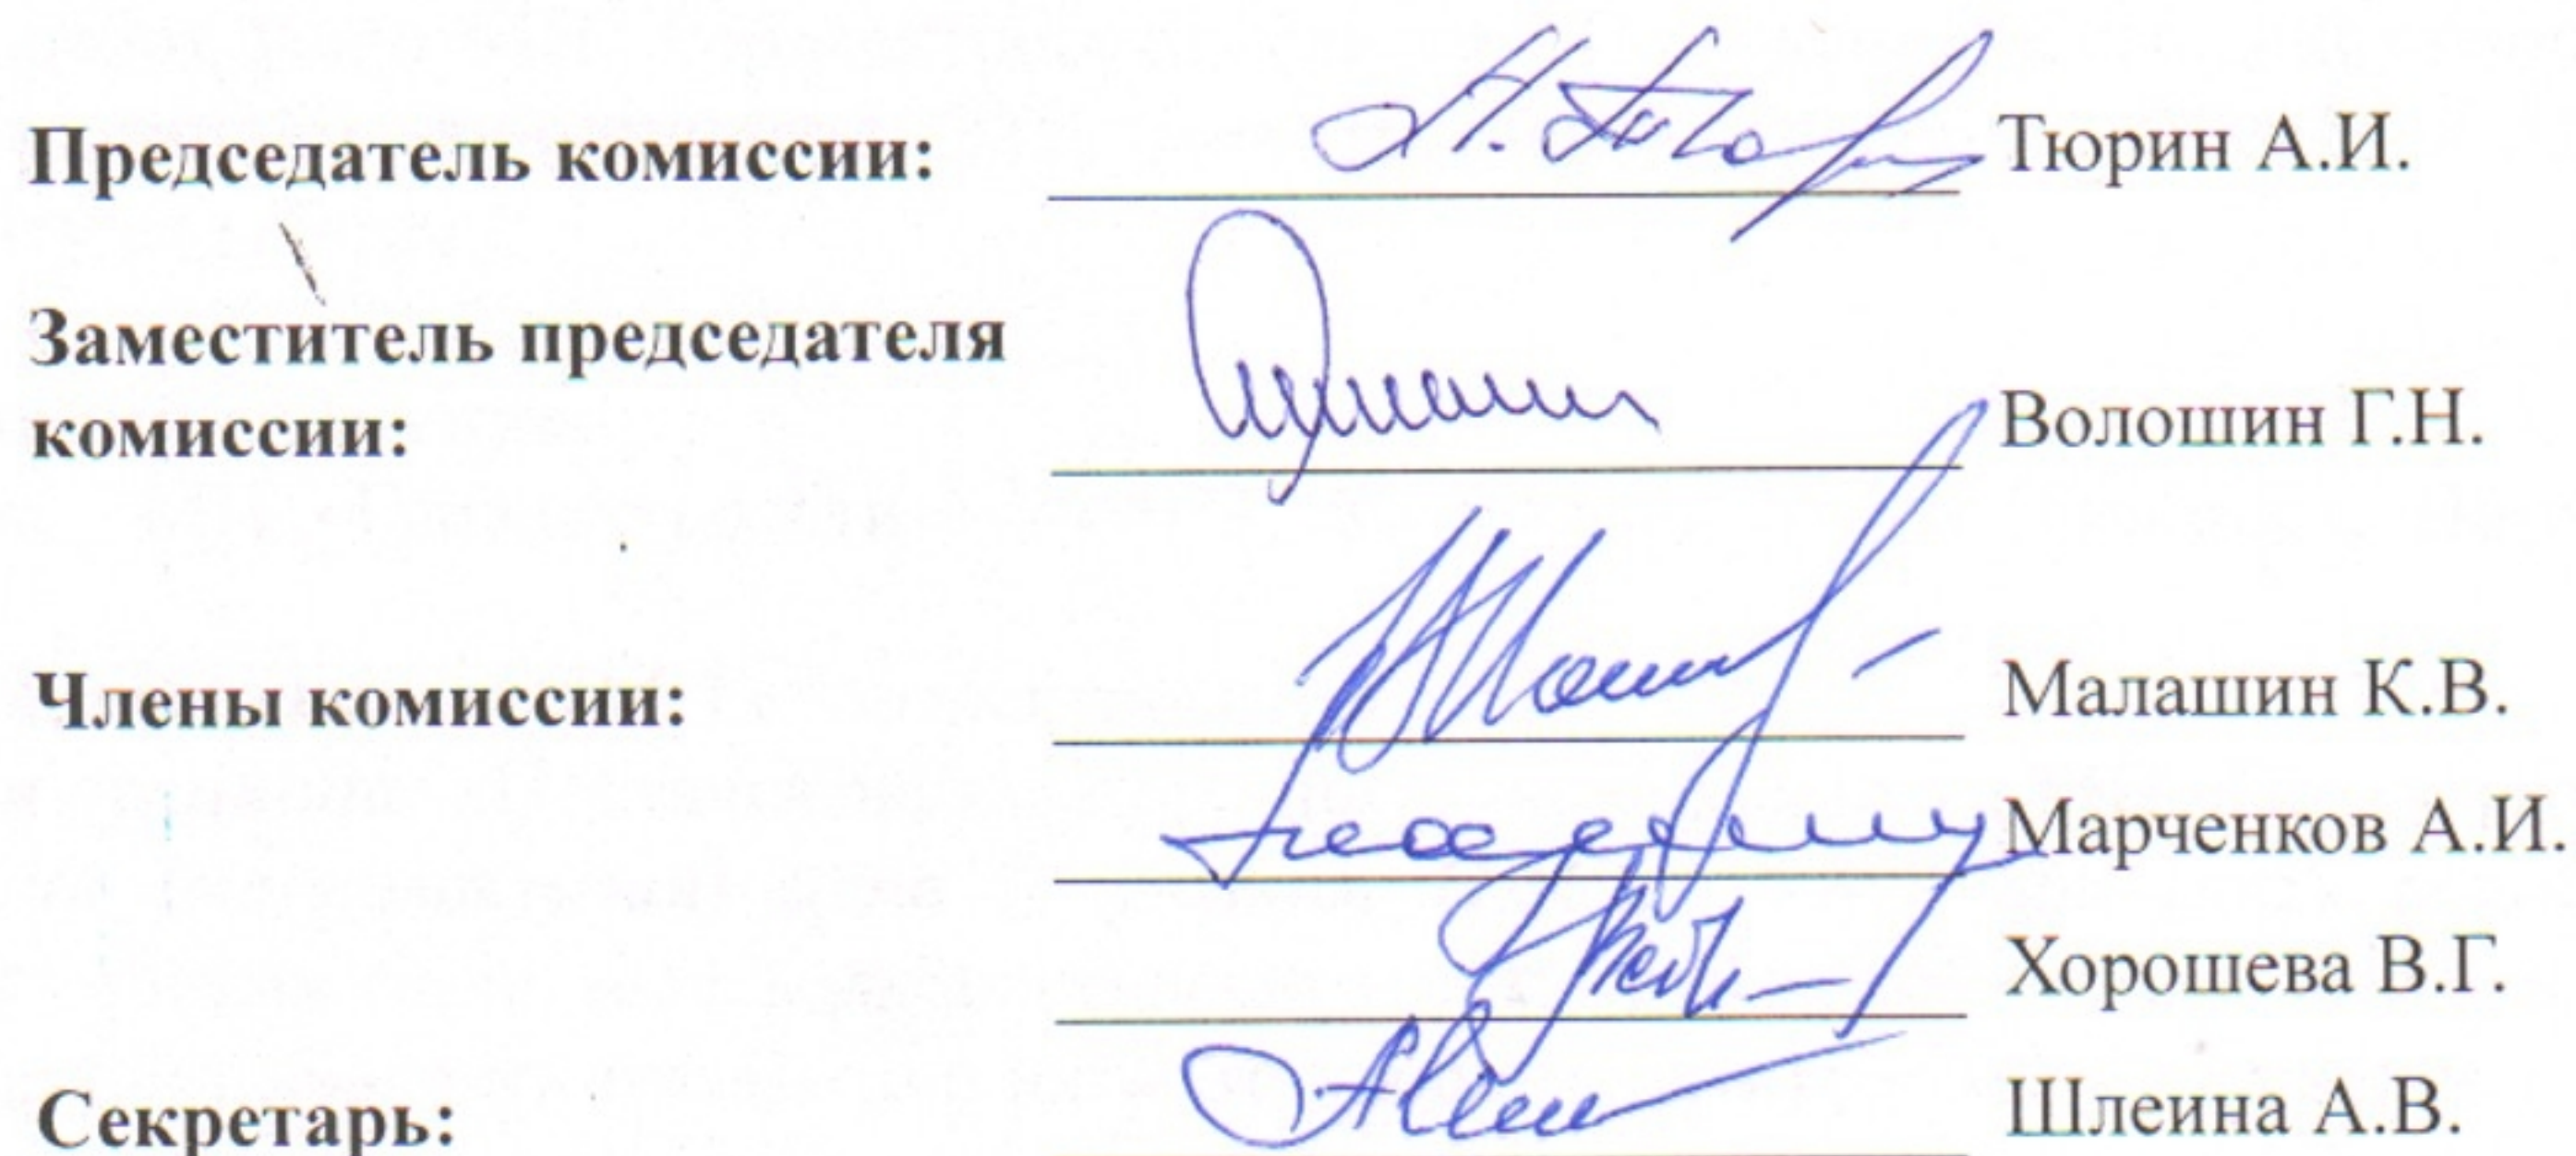 Председатель комиссии: Тюрин А.И.
Заместитель председателя
комиссии: Волошин Г.Н.
Члены комиссии: Малашин К.В.
Марченков А.И.
Хорошева В.Г.
Секретарь: Шлеина А.В.